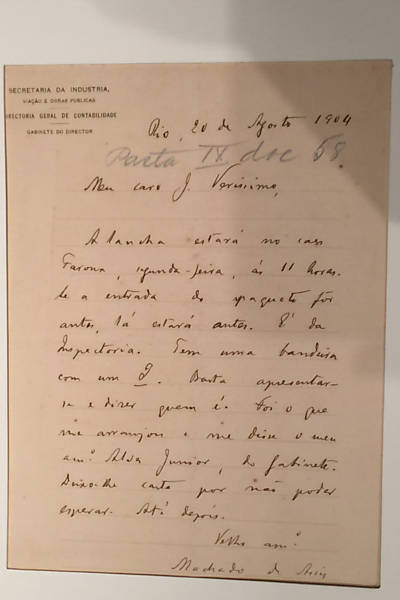 SECRETARIA DA INDUSTRIA,
VIAÇÃO E OBRAS PUBLICAS
DIRECTORIA GERAL DE CONTABILIDADE
GABINETE DO DIRECTOR
Rio, 20 de Agosto 1904
Pasta IX doc 58
Meu caro J. Verissimo,
A lancha estará no caes
Pharoux, segunda-feira, ás 11 horas.
Se a entrada do paquete for
antes, lá estará antes. É da
Inspectoria. Tem uma bandeira
com um
Basta apresentar-
se e dizer quem é. Foi o que
me arranjou e me disse o meu
am.º Alves Junior, do gabinete.
Deixo-lhe carta por não poder
esperar. Até depois.
Velho am.º
Machado de Assis